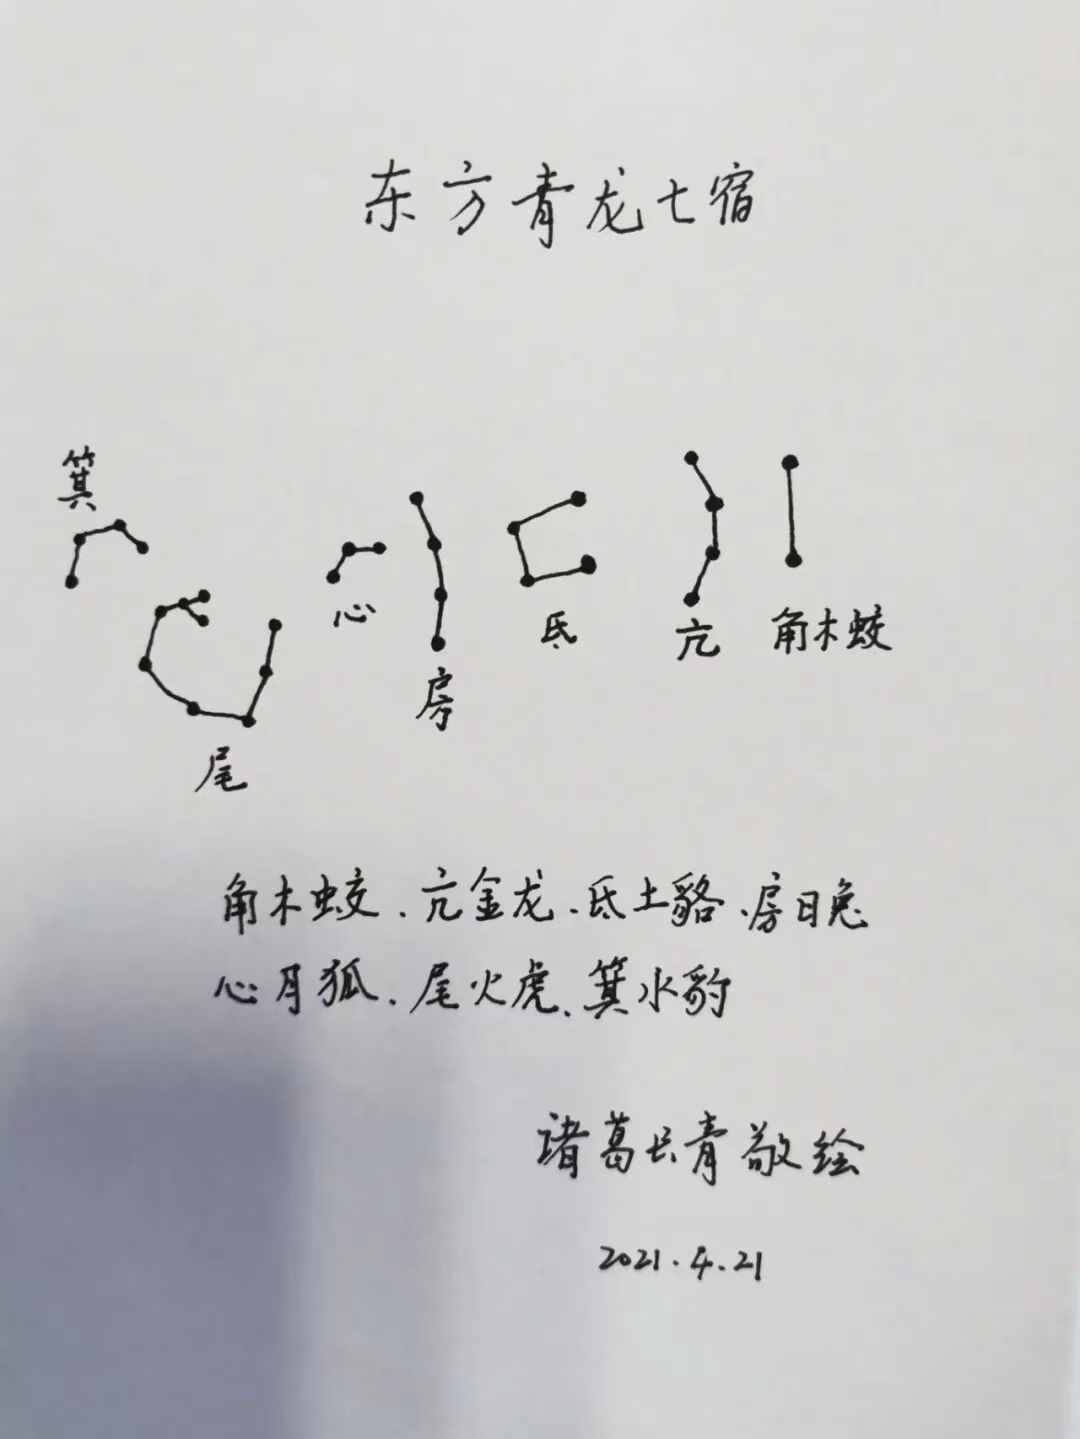 东方青龙七宿
箕
心
氐
亢
角木蛟
房
尾
角木蛟、亢金龙、氐土貉、房日兔
心月狐、尾火虎、箕水豹
诸葛长青敬绘
2021.4.21